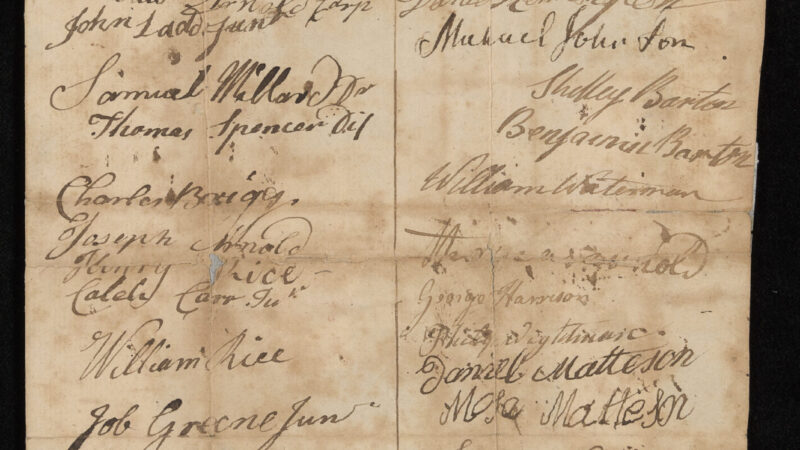 Arnold Corp
John Ladd Junr
Samuel Millard Dr
Thomas Spencer Dij
Charles Briggs
Joseph Arnold
Henry Rice
Caleb Carr Junr
William Rice
Job Greene Junr
Michael Johnson
Shelley Barton
Benjamin Barton
William Waterman
George Harrison
Philip Nightinale
Daniel Matteson
Mosa Matteson